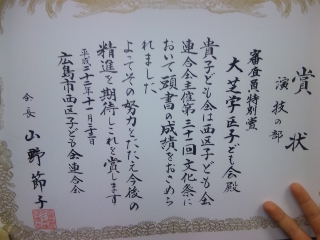 賞状
演技の部
審査員特別賞
大芝学区子ども会殿
貴子ども会は西区子ども会
連合会主催第三十一回文化祭に
おいて頭書の成績をおさめら
れました
よってその努力をたたえ今後の
精進を期待しこれを賞します
平成二十二年十一月二十三日
広島市西区子ども会連合会
会長 山野節子